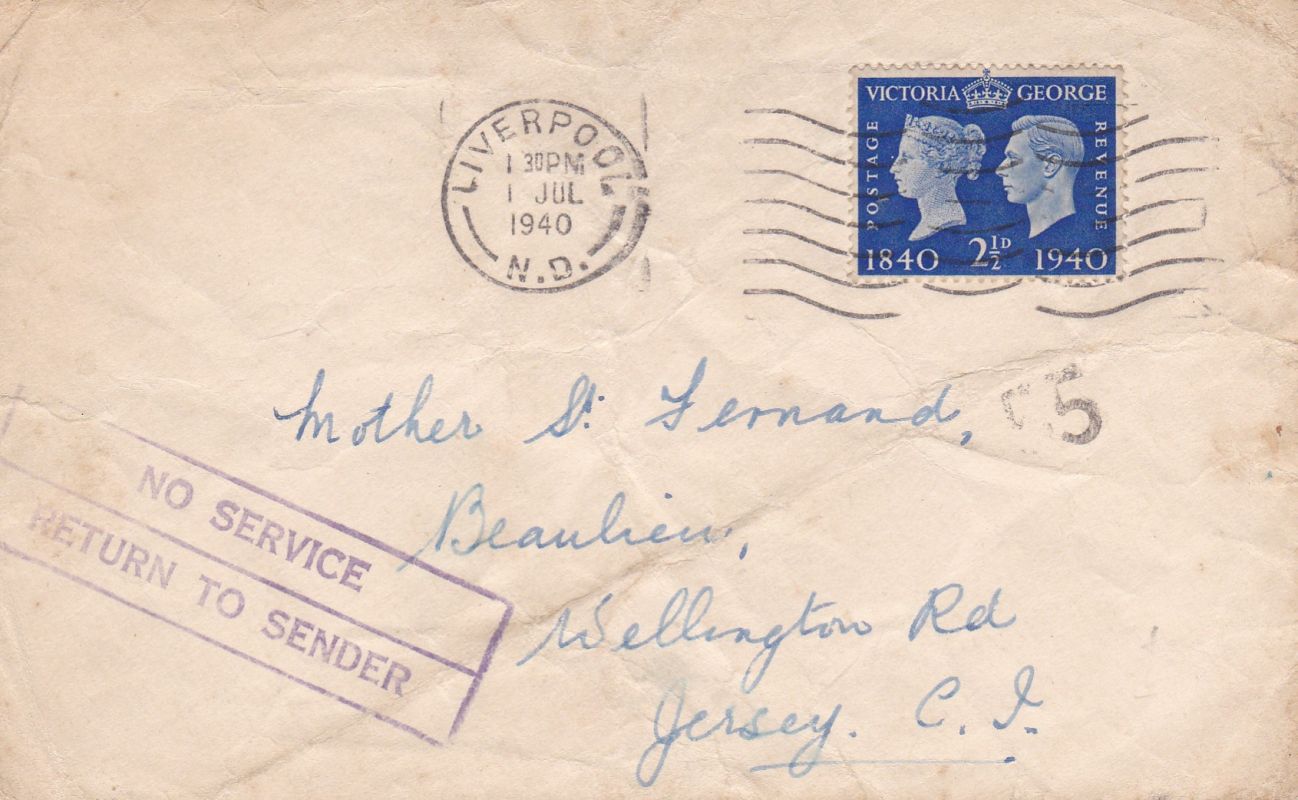 LIVERPOOL
1 30PM
1 JUL
1940
N.D.
VICTORIA GEORGE
POSTAGE
REVENUE
1840 2½D 1940
Mother St. Fernand,
5
Beaulieu,
Wellington Rd
Jersey. C. I.
NO SERVICE
RETURN TO SENDER